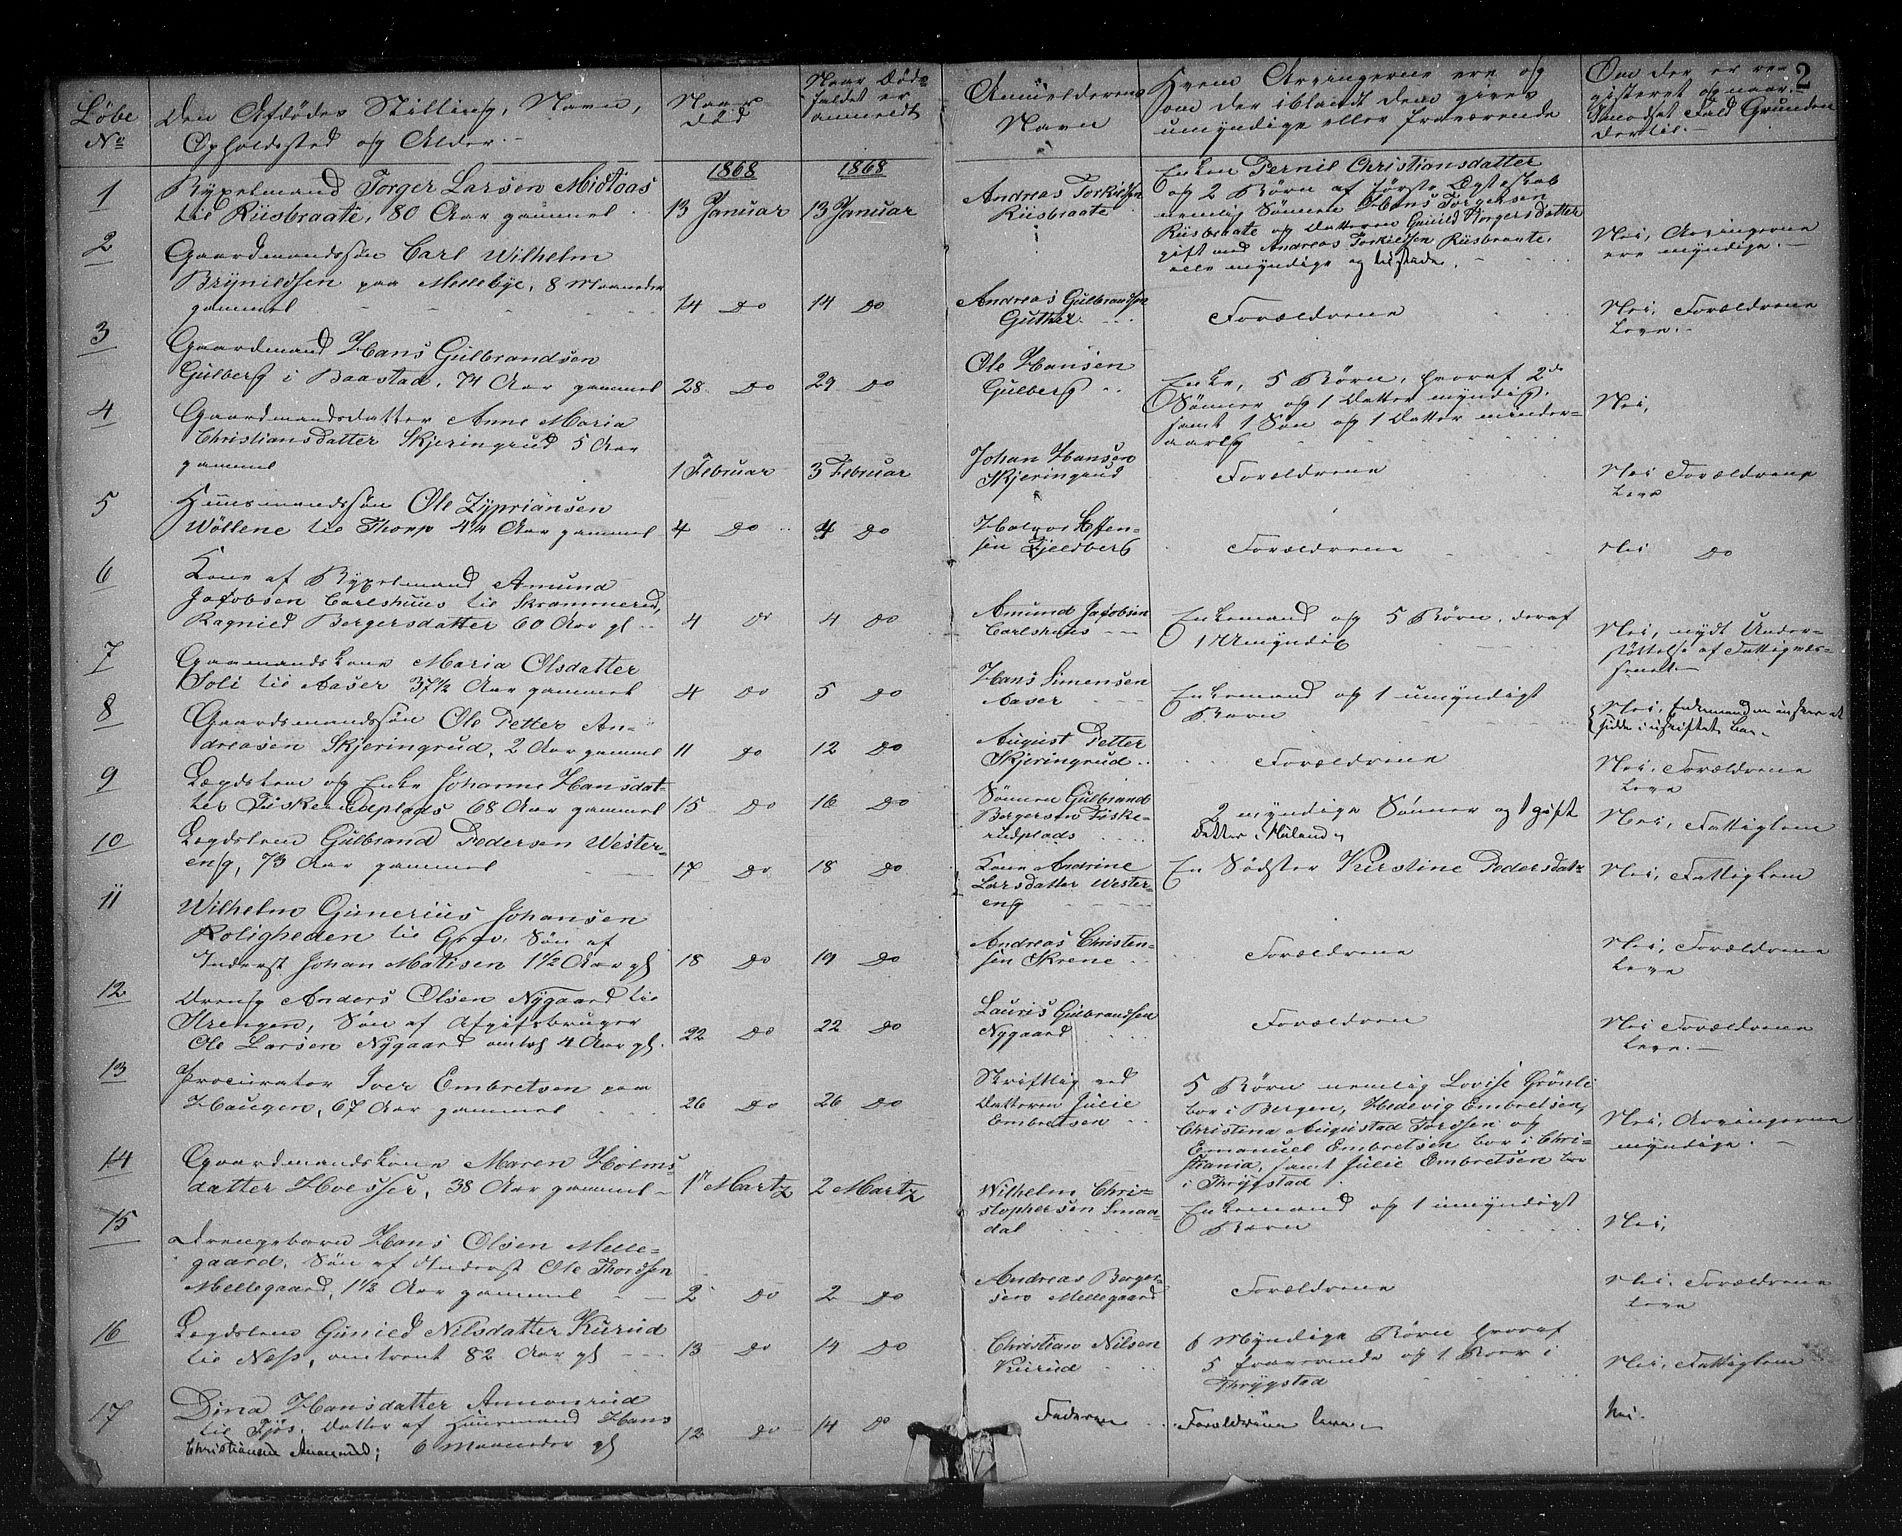 2
Løbe
No
Den Afdødes Stilling, Navn,
Opholdssted og Alder.
Naar
død
Naar Døds-
faldet er
anmeldt
Anmelderens
Navn
Hvem Arvingerne ere og
om der iblandt dem gives
umyndige eller fraværende
Om der er re-
gisteret og naar.
I modsat Fald Grunden
dertil.
1868
1868
1
Torger Larsen Midtaas
til Riisbraate, 80 Aar gammel
13 Januar
13 Januar
Andreas Torkildsen
Riisbraate
Enken Pernil Christiansdatter
og 2 Børn af første Ægteskab
nemlig Sønnen Hans Torgersen
Riisbraate og Datteren Gunild Torgersdatter
gift med Andreas Torkildsen Riisbraate,
alle myndige og tilstede.
Nei, Arvingerne
ere myndige.
2
Gaardmandssøn Carl Wilhelm
Brynildsen paa Mellebye, 8 Maaneder
gammel
14 do
14 do
Andreas Gulbrandsen
Guther
Forældrene
Nei, Forældrene
leve.
3
Gaardmand Hans Gulbrandsen
Gulberg i Baastad, 74 Aar gammel
28 do
29 do
Ole Hansen
Gulberg
Enke, 5 Børn, hvoraf 2de
Sønner og 1 Datter myndig,
samt 1 Søn og 1 Datter minder-
aarig
Nei,
4
Gaardmandsdatter Anne Maria
Christiansdatter Skjeringrud 5 Aar
gammel
1 Februar
3 Februar
Johan Hansen
Skjeringrud
Forældrene
Nei Forældrene
leve
5
Huusmandssøn Ole Zypriansen
Wøllene til Thorp 4¼ Aar gammel
4 do
4 do
Steffen-
sen Fjeldberg
Forældrene
Nei do
6
Kone af Amund
Jacobsen Carlshuus til Skrammerud,
Ragnild Borgersdatter 60 Aar gl
4 do
4 do
Amund Jacobsen
Carlshuus
Enkemand og 5 Børn, deraf
1 Umyndig
Nei, nydt Under-
støttelse af Fattigvæs-
senet
7
Gaarmandskone Maria Olsdatter
Soli til Aaser 37½ Aar gammel
4 do
5 do
Hans Simensen
Aaser
Enkemand og 1 umyndigt
Barn
Nei, Enkemanden ønsker at
sidde i uskiftet Bo
8
Gaardsmandssøn Ole Petter An-
dreasen Skjeringrud, 2 Aar gammel
11 do
12 do
August Petter
Skjeringrud
Forældrene
Nei. Forældrene
leve
9
Lægdslem og Enke Johanne Hansdat-
ter Fiskerudplads 68 Aar gammel
15 do
16 do
Sønnen Gulbrand
Borgersen Fiske-
rudplads
2 myndige Sønner og 1 gift
Datter i Høland
Nei, Fattiglem
10
Legdslem Gulbrand Pedersen Wester-
eng, 73 Aar gammel
17 do
18 do
Kone Andrine
Larsdatter Wester-
eng
En Sødster Kirstine Pedersdatr
Nei, Fattiglem
11
Wilhelm Gunerius Johansen
Roligheden til Grav. Søn af
Inderst Johan Matisen 1½ Aar gl
18 do
19 do
Andreas Christen-
sen Skrene
Forældrene
Nei, Forældrene
leve
12
Dreng Anders Olsen Nygaard til
Strengen, Søn af Afgiftsbruger
Ole Larsen Nygaard omtrt 4 Aar gl.
22 do
22 do
Lauris Gulbrandsen
Nygaard
Forældren
Nei Forældrene
leve.
13
Procurator Iver Embretsen paa
Haugen, 67 Aar gammel
26 do
26 do
Skriftlig ved
Datteren Julie
Embretsen
5 Børn nemlig Lovise Grønli
bor i Bergen, Hedevig Embretsen,
Christina Augustad Tordsen og
Emanuel Embretsen bor i Chri-
stiania, samt Julie Embretsen bor
i Thrygstad
Nei, Arvingerne
myndige.
14
Gaardmandskone Maren Holms-
datter 38 Aar gammel
1 Martz
2 Martz
Wilhelm Chri-
stophersen Smaa-
dal
Enkemand og 1 umyndigt
Barn
Nei,
15
Drengebarn Hans Olsen Melle-
gaard. Søn af Inderst Ole Thordsen
Mellegaard, 1½ Aar gammel
2 do
2 do
Andreas Borger-
sen Mellegaard
Forældrene
Nei. Forældrene
leve
16
Legdslem Gunild Nilsdatter Kurud
til Næss, omtrent 82 Aar gl
13 do
14 do
Christian Nilsen
Kurud
6 Myndige Børn hvoraf
5 fraværende og 1 Boer i
Thrygstad
Nei, Fattiglem
17
Dina Hansdatter Annonrud
til Fjøs. Datter af Huusmand Hans
Christiansen 6 Maaneder gl
12 do
14 do
Faderen
Forældrene leve.
Nei.